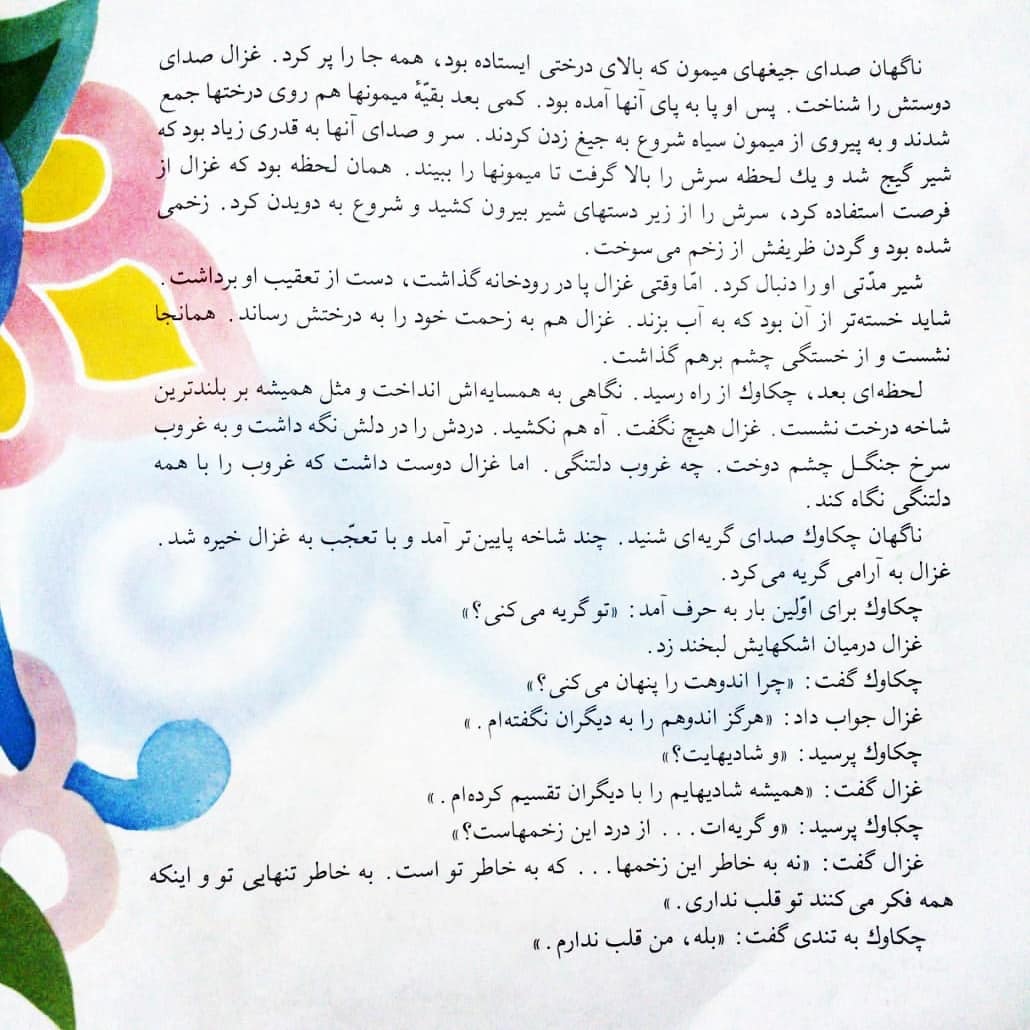 ناگهان صدای جیغهای میمون که بالای درختی ایستاده بود، همه جا را پر کرد. غزال صدای
دوستش را شناخت. پس او پا به پای آنها آمده بود. کمی بعد بقیّهٔ میمونها هم روی درختها جمع
شدند و به پیروی از میمون سیاه شروع به جیغ زدن کردند. سر و صدای آنها به قدری زیاد بود که
شیر گیج شد و یك لحظه سرش را بالا گرفت تا میمونها را ببیند. همان لحظه بود که غزال از
فرصت استفاده کرد، سرش را از زیر دستهای شیر بیرون کشید و شروع به دویدن کرد. زخمی
شده بود و گردن ظریفش از زخم می‌سوخت.
شیر مدّتی او را دنبال کرد. امّا وقتی غزال پا در رودخانه گذاشت، دست از تعقیب او برداشت.
شاید خسته‌تر از آن بود که به آب بزند. غزال هم به زحمت خود را به درختش رساند. همانجا
نشست و از خستگی چشم برهم گذاشت.
لحظه‌ای بعد، چکاوك از راه رسید. نگاهی به همسایه‌اش انداخت و مثل همیشه بر بلندترین
شاخه درخت نشست. غزال هیچ نگفت. آه هم نکشید. دردش را در دلش نگه داشت و به غروب
سرخ جنگل چشم دوخت. چه غروب دلتنگی. اما غزال دوست داشت که غروب را با همه
دلتنگی نگاه کند.
ناگهان چکاوك صدای گریه‌ای شنید. چند شاخه پایین‌تر آمد و با تعجّب به غزال خیره شد.
غزال به آرامی گریه می‌کرد.
چکاوك برای اوّلین بار به حرف آمد: «تو گریه می‌کنی؟»
غزال درمیان اشکهایش لبخند زد.
چکاوك گفت: «چرا اندوهت را پنهان می‌کنی؟»
غزال جواب داد: «هرگز اندوهم را به دیگران نگفته‌ام.»
چکاوك پرسید: «و شادیهایت؟»
غزال گفت: «همیشه شادیهایم را با دیگران تقسیم کرده‌ام.»
چکاوك پرسید: «و گریه‌ات... از درد این زخمهاست؟»
غزال گفت: «نه به خاطر این زخمها... که به خاطر تو است. به خاطر تنهایی تو و اینکه
همه فکر می‌کنند تو قلب نداری.»
چکاوك به تندی گفت: «بله، من قلب ندارم.»